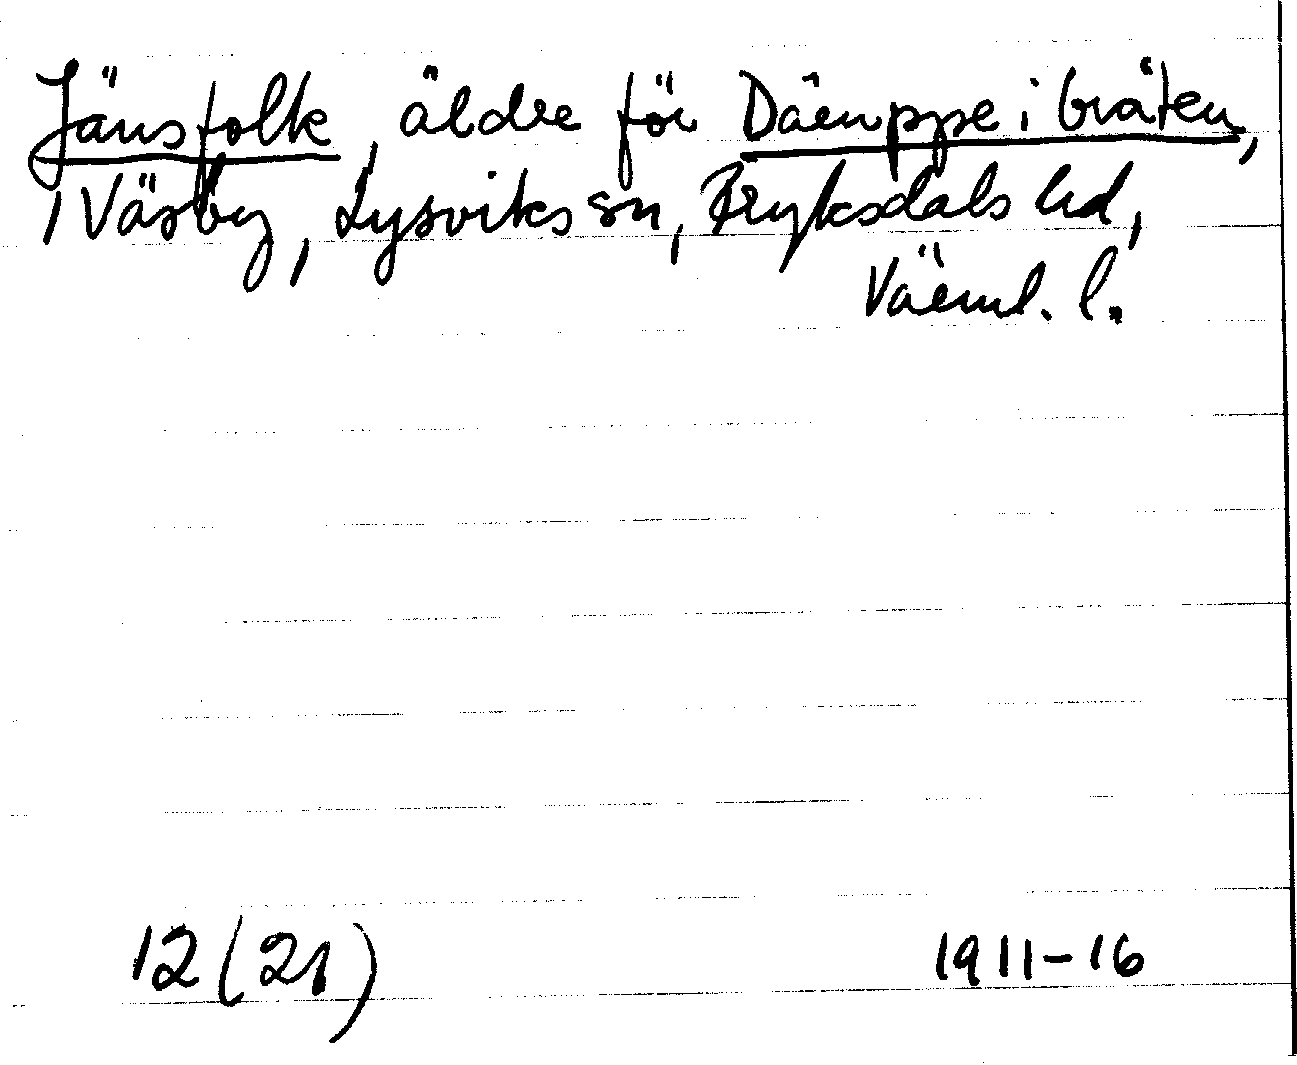 Jänsfolk, äldre för Därnppe i bråten,
i Väsby, Lysviks sn, Fryksdals hd,
Värml. l.
12 (21) 1911-16